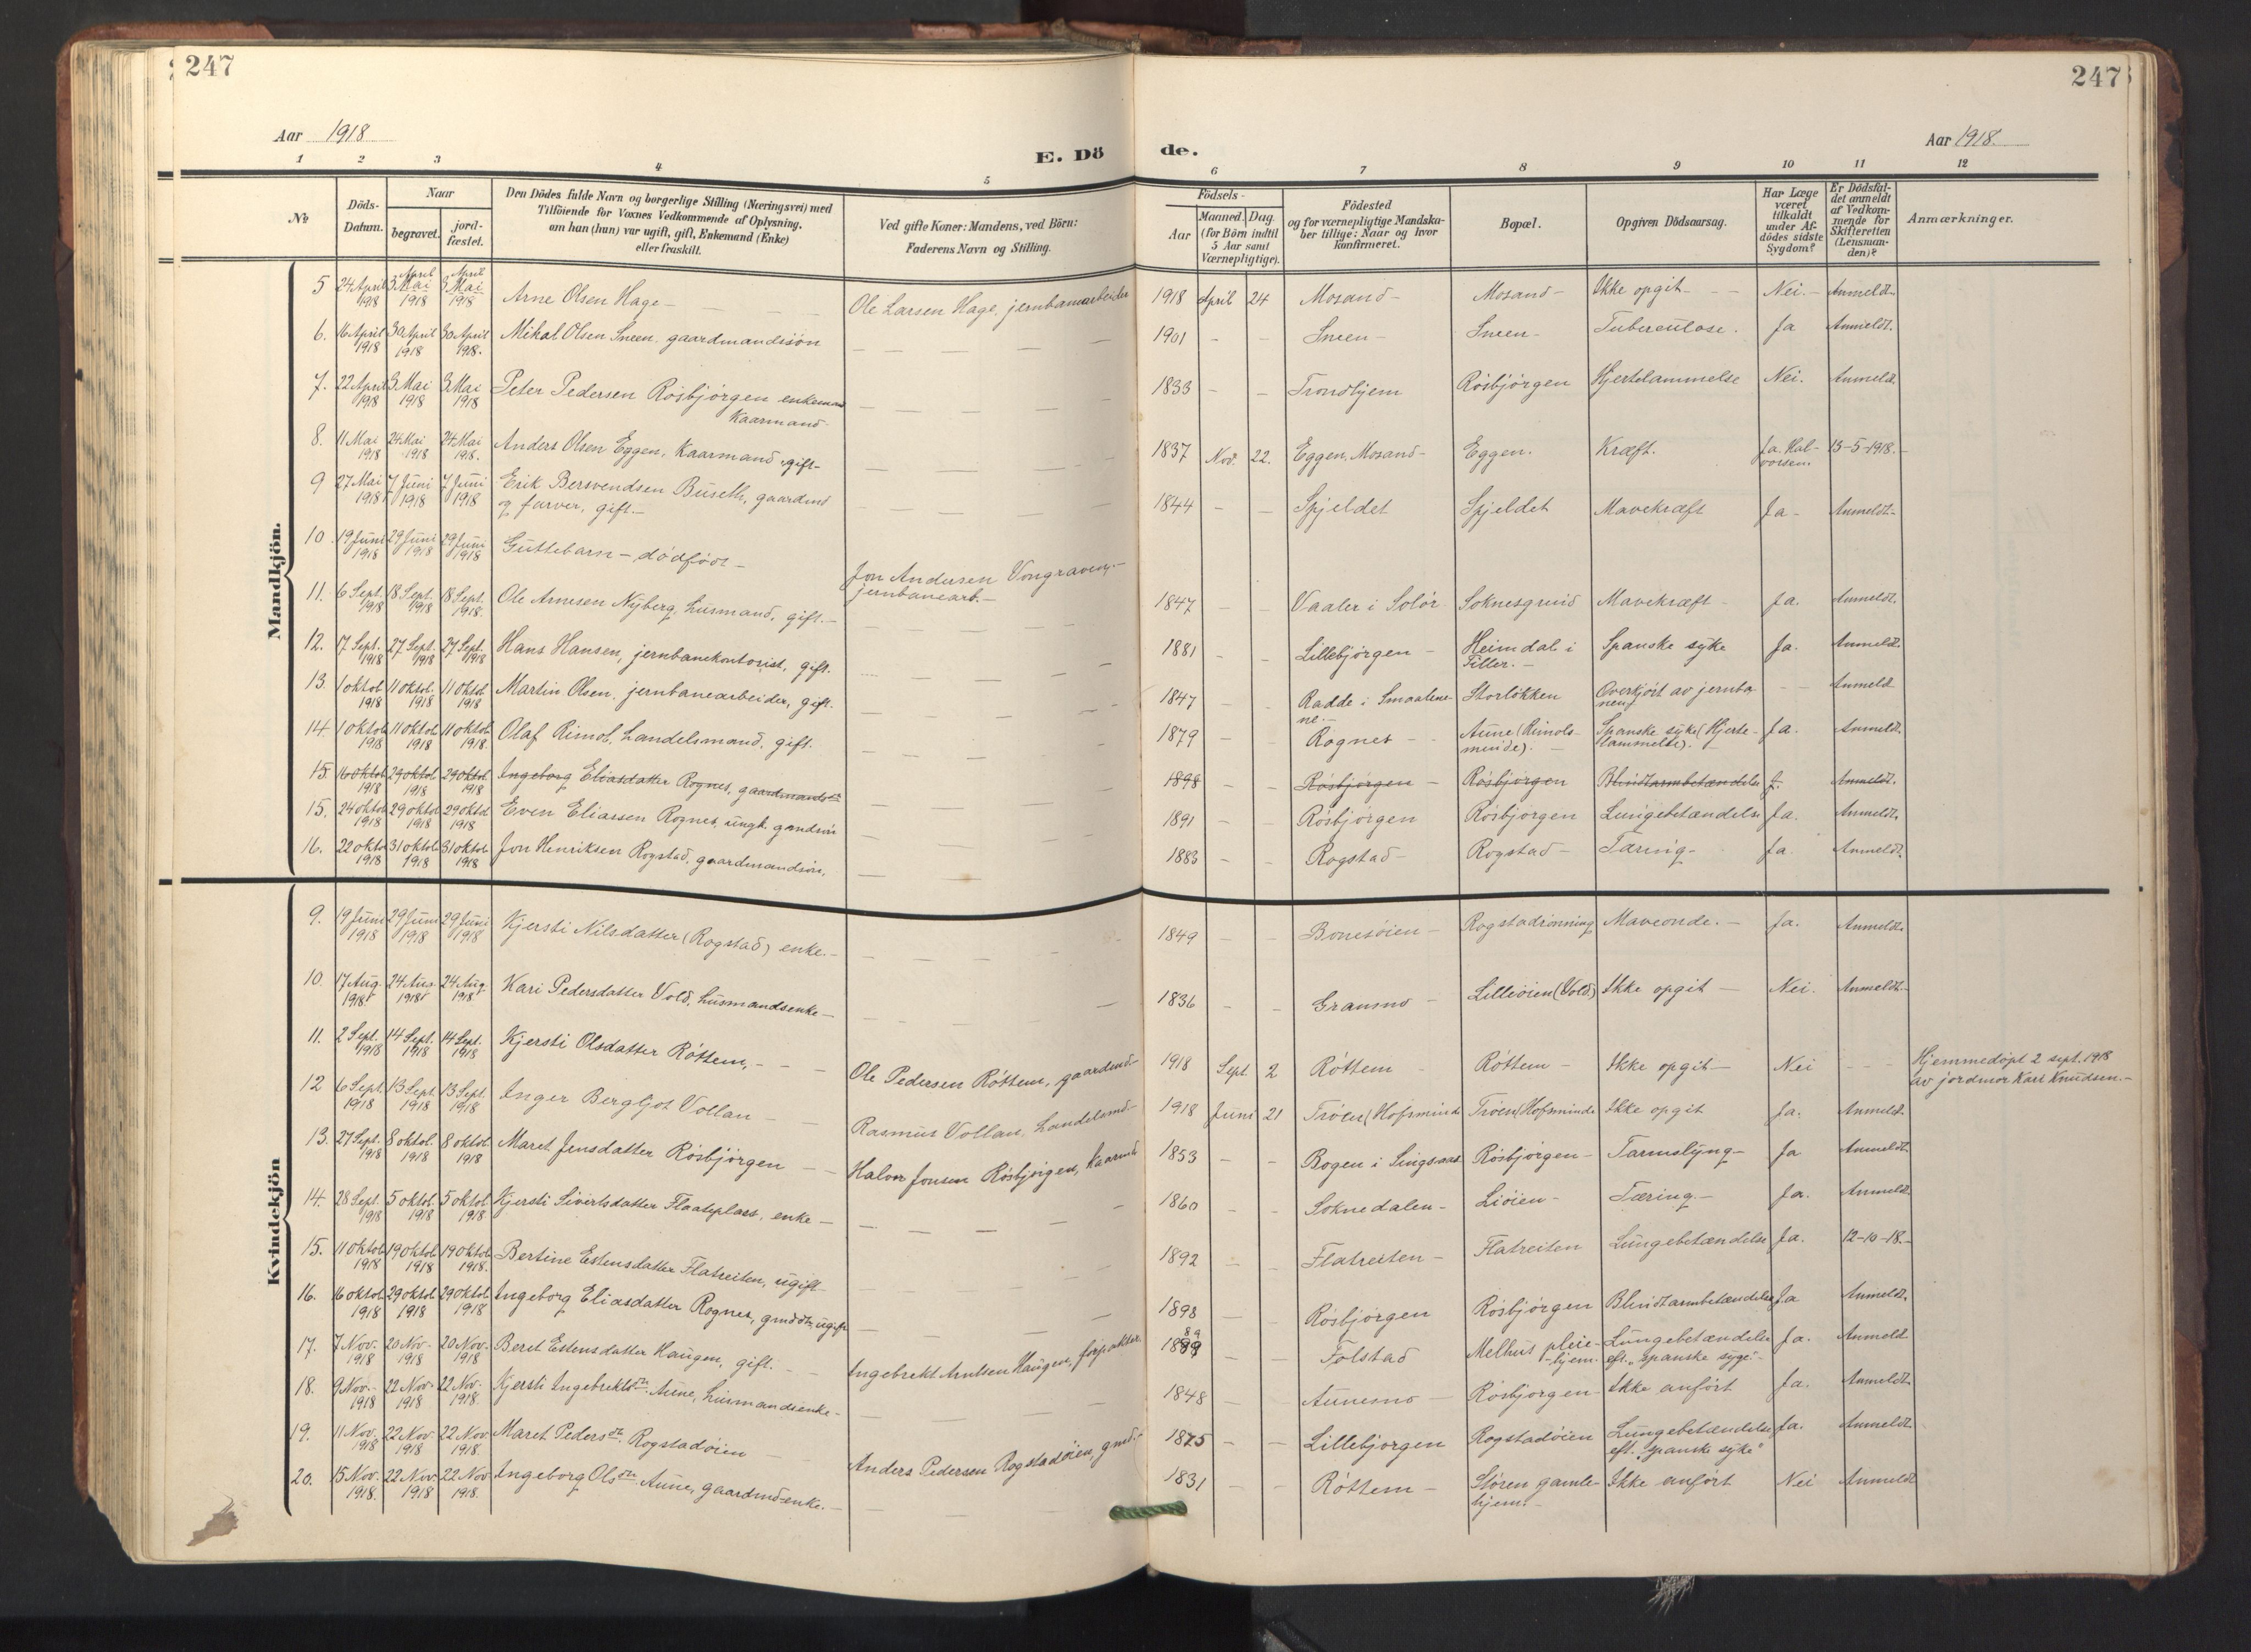 247
247
Aar 1918
Aar 1918.
E. Dö de.
1 2 3 4 5 6 7 8 9 10 11 12
No
Döds-Datum.
Naar
begravet.
jord-fæstet.
Den Dödes fulde Navn og borgerlige Stilling (Næringsvei) med
Tilföiende for Voxnes Vedkommende af Oplysning,
om han (hun) var ugift, gift, Enkemand (Enke)
eller fraskilt.
Ved gifte Koner: Mandens, ved Börn:
Faderens Navn og Stilling.
Födsels-
Aar
Maaned. Dag.
(for Börn indtil
5 Aar samt
Værnepligtige).
Födested
og for værnepligtige Mandska-
ber tillige: Naar og hvor
konfirmeret.
Bopæl.
Opgiven Dödsaarsag.
Har Læge
været
tilkaldt
under Af-
dödes sidste
Sygdom?
Er Dödsfal-
det anmeldt
af Vedkom-
mende for
Skifteretten
(Lensman-
den)?
Anmærkninger.
Mandkjön.
5 24 April 1918 3 Mai April 1918 3 Mai April 1918 Arne Olsen Hage - Ole Larsen Hage, jernbanearbeider 1918 April 24 Mosand - Mosand - Ikke opgit - Nei. - Anmeldt.
6. 16 April 1918 30 April 1918 30 April 1918. Mikal Olsen Sneen, gaardmandssön 1901 - - Sneen - Sneen - Tuberculose. Ja Anmeldt.
7. 22 April 1918 3 Mai 1918 3 Mai 1918 Peter Pedersen Rösbjörgen enkemand Kaarmand 1833 - - Trondhjem Rösbjörgen Hjertelammelse Nei. Anmeldt.
8. 11 Mai 1918 24 Mai 1918 24 Mai 1918. Anders Olsen Eggen, Kaarmand, gift - 1837 Nov. 22. Eggen, Mosand - Eggen. Kræft. Ja. Halvorsen. 13-5-1918.-
9 27 Mai 1918 7 Juni 1918 7 Juni 1918 Erik Bersvendsen Buseth, gaardmd og farver, gift. - 1844 - - Spjeldet Spjeldet Mavekræft Ja - Anmeldt -
10 19 Juni 1918 29 Juni 1918 29 Juni 1918 Guttebarn - dödfödt - Jon Andersen Vongraven, - jernbanearb. -
11. 6 Sept. 1918 18 Sept. 1918 18 Sept. 1918. Ole Arnesen Nyberg, husmand, gift. - 1847 - - Vaaler i Solör Soknesgrund Mavekræft - Ja. Anmeldt.
12. 17 Sept. 1918 27 Sept. 1918 27 Sept. 1918 Hans Hansen, jernbanekontorist, gift. 1881 - - Lillebjörgen - Heimdal i Tiller. - Spanske syke Ja. Anmeldt.
13. 1 oktob 1918 11 oktob. 1918 11 oktob 1918 Martin Olsen, jernbanearbeider, gift. 1847 - - Radde i Smaalenene. - Storlökken Overkjört av jernbanen - - Anmeldt
14. 1 oktob 1918 11 oktob 1918 11 oktob 1918. Olaf Rimol, handelsmand, gift. 1879 - - Rognes - Aune (Rimolsminde). - Spanske syke (Hjertelammelse). - Ja. Anmeldt.
15. 16 oktob 1918 29 oktob 1918 29 oktob. 1918 Ingeborg Eliasdatter Rognes, gaardmandsdt. 1898 - - Rösbjörgen - Rösbjörgen Blindtarmbetændelse J. Anmeldt.
15. 24 oktob 1918 29 oktob 1918 29 oktob 1918 Even Eliassen Rognes, ungk. gmdsön 1891 - - Rösbjörgen Rösbjörgen Lungebetændelse Ja. Anmeldt.
16. 22 oktob 1918 31 oktob 1918 31 oktob. 1918 Jon Henriksen Rogstad, gaardmandssön, 1883 - - Rogstad - Rogstad - Tæring - Ja. Anmeldt.
Kvindekjön
9. 19 Juni 1918 29 Juni 1918 29 Juni 1918 Kjersti Nilsdatter (Rogstad) enke. - 1849 - - Bonesöien - Rogstadrönning Maveonde. - Ja. Anmeldt.
10. 17 Aug. 1918 24 Aug 1918 24 Aug. 1918 Kari Pedersdatter Vold, husmandsenke - 1836 - - Gransmo - Lilleöien (Vold) Ikke opgit - Nei. Anmeldt. -
11. 2 Sept. 1918 14 Sept. 1918 14 Sept. 1918 Kjersti Olsdatter Röttem, - - - Ole Pedersen Röttem, gaardmd - 1918 Sept 2 Röttem - Röttem - Ikke opgit - Nei - - - Hjemmedöpt 2 sept. 1918 av jordmor Kari Knudsen. -
12 6 Sept. 1918 13 Sept. 1918 13 Sept. 1918 Inger Bergljot Vollan - Rasmus Vollan, handelsmd. - 1918 Juni 21 Tröen (Hofsminde Tröen (Hofsminde Ikke opgit Ja. Anmeldt.
13. 27 Sept. 1918 8 oktob. 1918 8 oktob 1918 Maret Jensdatter Rösbjörgen - - Halvor Jonsen Rösbjörgen, Kaarmd 1853 - - Bogen i Singsaas Rösbjörgen - Tarmslyng - Ja Anmeldt.
14. 28 Sept. 1918 5 oktob. 1918 5 oktob. 1918. Kjersti Sivertsdatter Flaateplass, enke - 1860 - - Soknedalen - Liöien - Tæring - Ja. Anmeldt.
15. 11 oktob 1918 19 oktob. 1918 19 oktob. 1918. Bertine Estensdatter Flatreiten, ugift 1892 - - Flatreiten - Flatreiten Lungebetændelse Ja. 12-10-18.-
16. 16 oktob 1918 29 oktob 1918 29 oktob. 1918 Ingeborg Eliasdatter Rognes, gmddtr., ugift 1898 - - Rösbjörgen Rösbjörgen Blindtarmbetændelse Ja Anmeldt.
17. 7 Nov. 1918 20 Nov. 1918 20 Nov. 1918 Beret Estensdatter Haugen, gift. - Ingebrekt Arntsen Haugen, forpakter. 1889 89 - - Folstad Melhus pleie-hjem. Lungebetændelse eft. "spanske syge". Ja. Anmeldt
18. 9 Nov. 1918 22 Nov. 1918 22 Nov. 1918. Kjersti Ingebrektsdtr. Aune, husmandsenke - 1848 - - Aunesmo - Rösbjörgen - Ikke anfört Ja. Anmeldt.
19. 11 Nov. 1918 22 Nov 1918 22 Nov 1918. Maret Pedersdt. Rogstadöien Anders Pedersen Rogstadöien, gmd. - 1875 - - Lillebjörgen Rogstadöien Lungebetændelse eft. "spanske syke" Ja. Anmeldt.
20. 15 Nov. 1918. 22 Nov 1918 22 Nov 1918. Ingeborg Olsdtr. Aune, gaardmdsenke. - 1831 - - Röttem - Stören gamlehjem. - Ikke anfört Nei Anmeldt